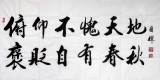 俯仰不愧天地
褒貶自有春秋